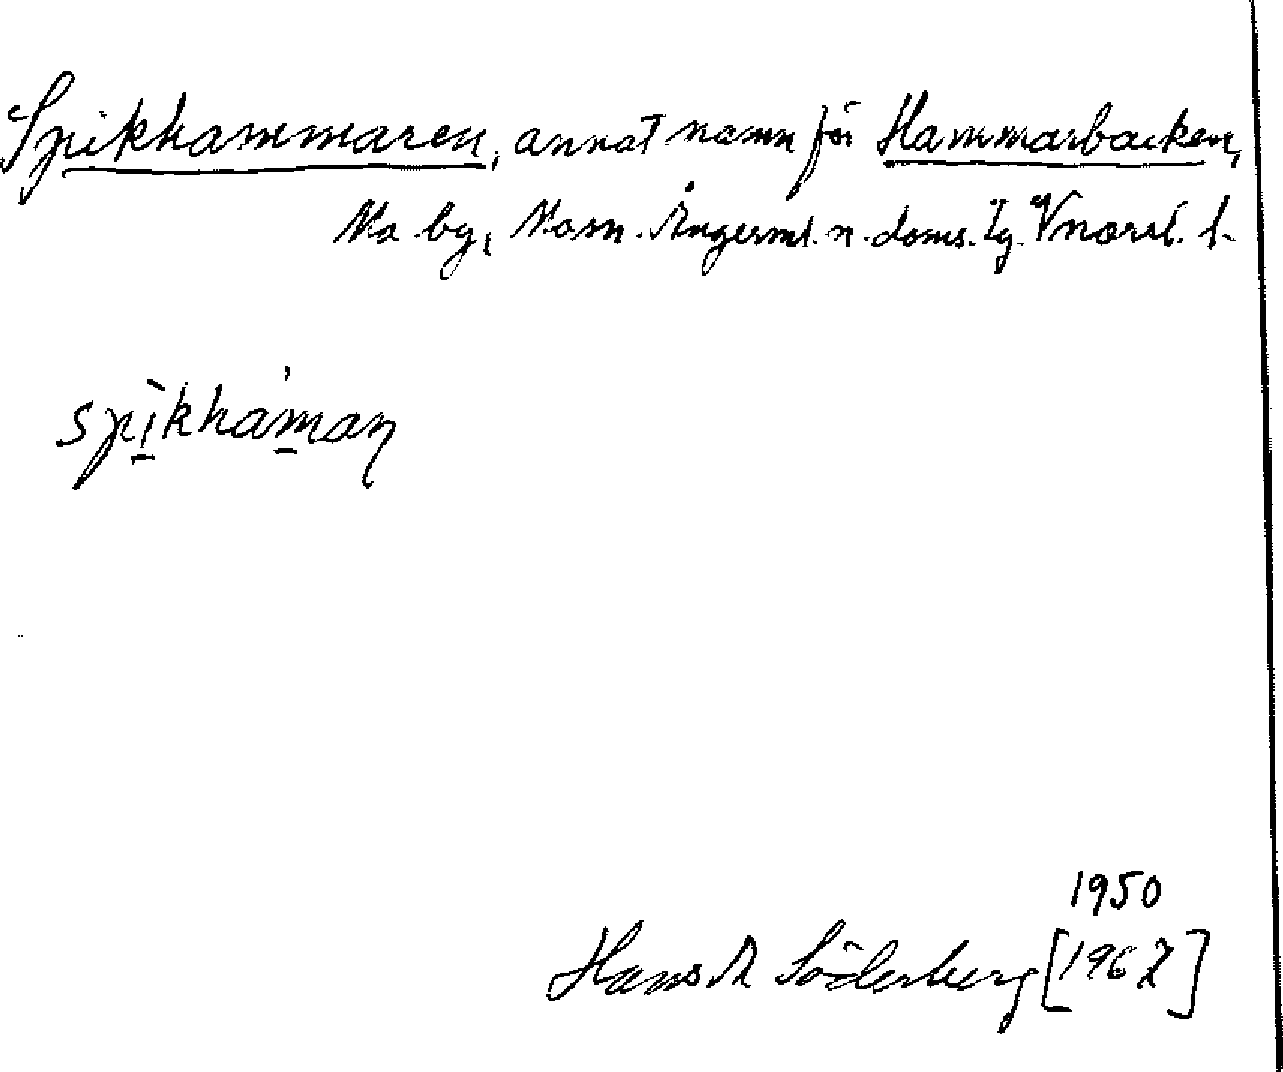 Spikhammaren, annat namn för Hammarbacken,
Mo by, Mosn. Ångerml. n. doms. Tg. Vnorrl. l.
spìkhámaṇ
1950
Hans A Söderberg [1967]